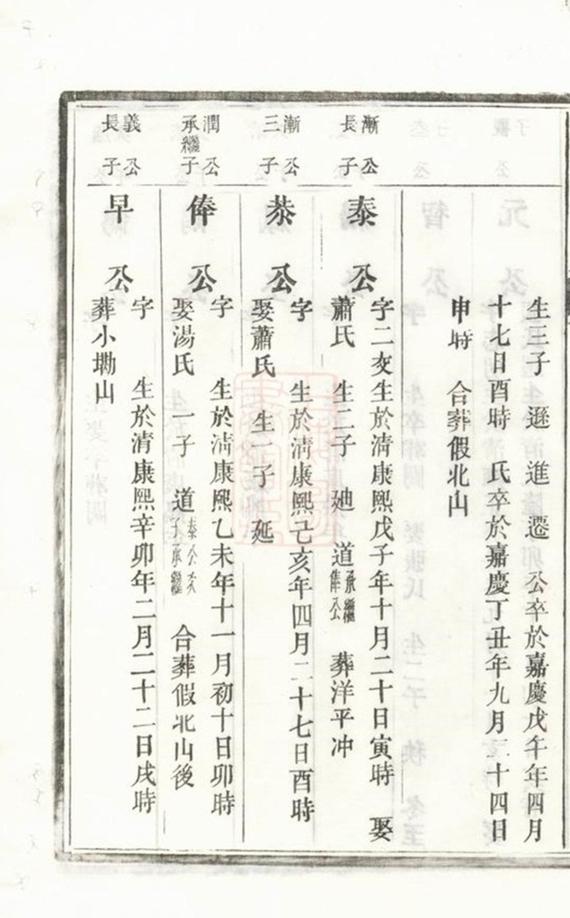 生三子　遜　進　遷　公卒於嘉慶戊午年四月
十七日酉時　氏卒於嘉慶丁丑年九月二十四日
申時　合葬假北山
漸公長子
泰公
字二交生於清康熙戊子年十月二十日寅時　娶
蕭氏　生二子　廸　道承繼俸公　葬洋平冲
漸公三子
恭公
字　生於清康熙己亥年四月二十七日酉時
娶蕭氏　生一子　延
潤公承繼子
俸公
字　生於清康熙乙未年十一月初十日卯時
娶湯氏　一子　道泰公次子承繼　合葬假北山後
義公長子
早公
字　生於清康熙辛卯年二月二十二日戌時
葬小塘山